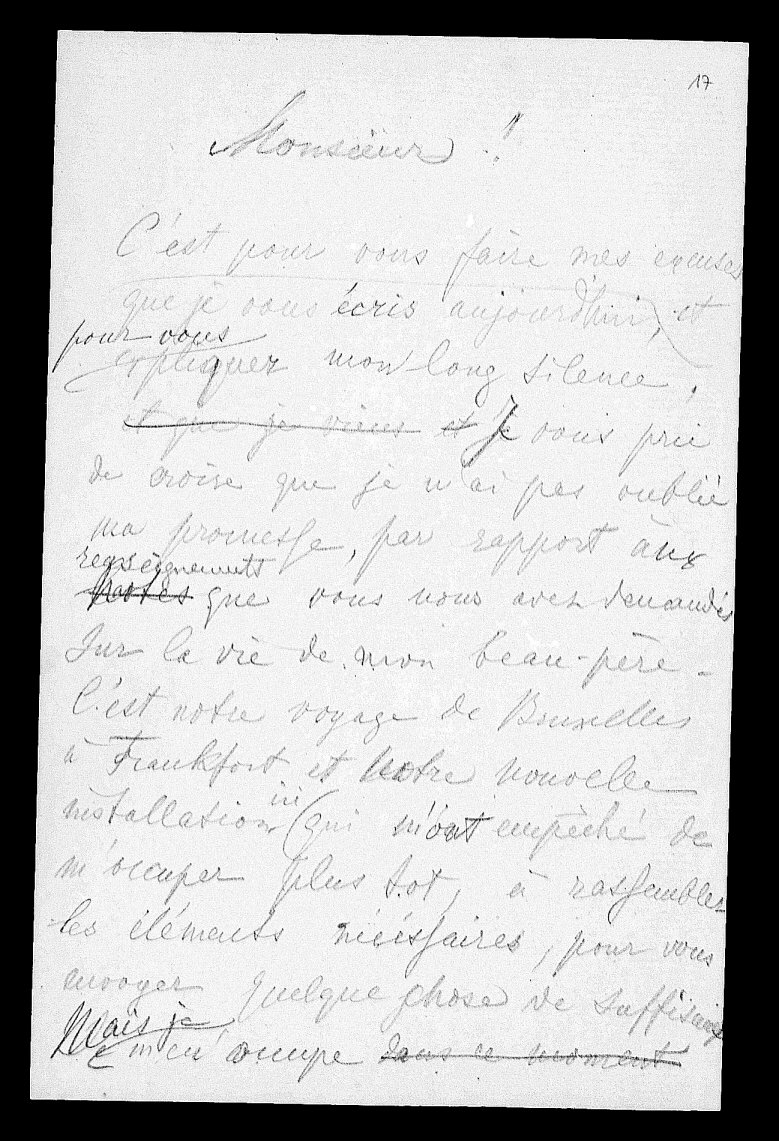 17
Monsieur !
C'est pour vous faire mes excuses
que je vous écris aujourd'hui, et
pour vous
expliquer mon long silence,
et que je viens et Je vous prie
de croire que je n'ai pas oublié
ma promesse, par rapport aux
renseignements
notes que vous nous avez demandés
Sur la vie de mon beau-père -
C'est notre voyage de Bruxelles
à Frankfort et notre nouvelle
installation ici (qui m'ont empêché de
m'occuper plus tot, à rassembler
les éléments nécéssaires, pour vous
envoyer quelque chose de suffisant
Mais je
m'en occupe dans ce moment